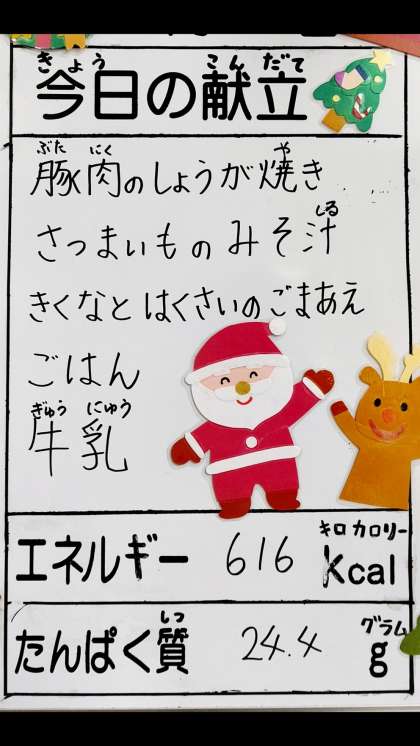 きょう こんだて
今日の献立
ぶた にく や
豚肉のしょうが焼き
しる
さつまいものみそ汁
きくなとはくさいのごまあえ
ごはん
ぎゅう にゅう
牛乳
キロカロリー
エネルギー 616 Kcal
しつ グラム
たんぱく質 24.4 g